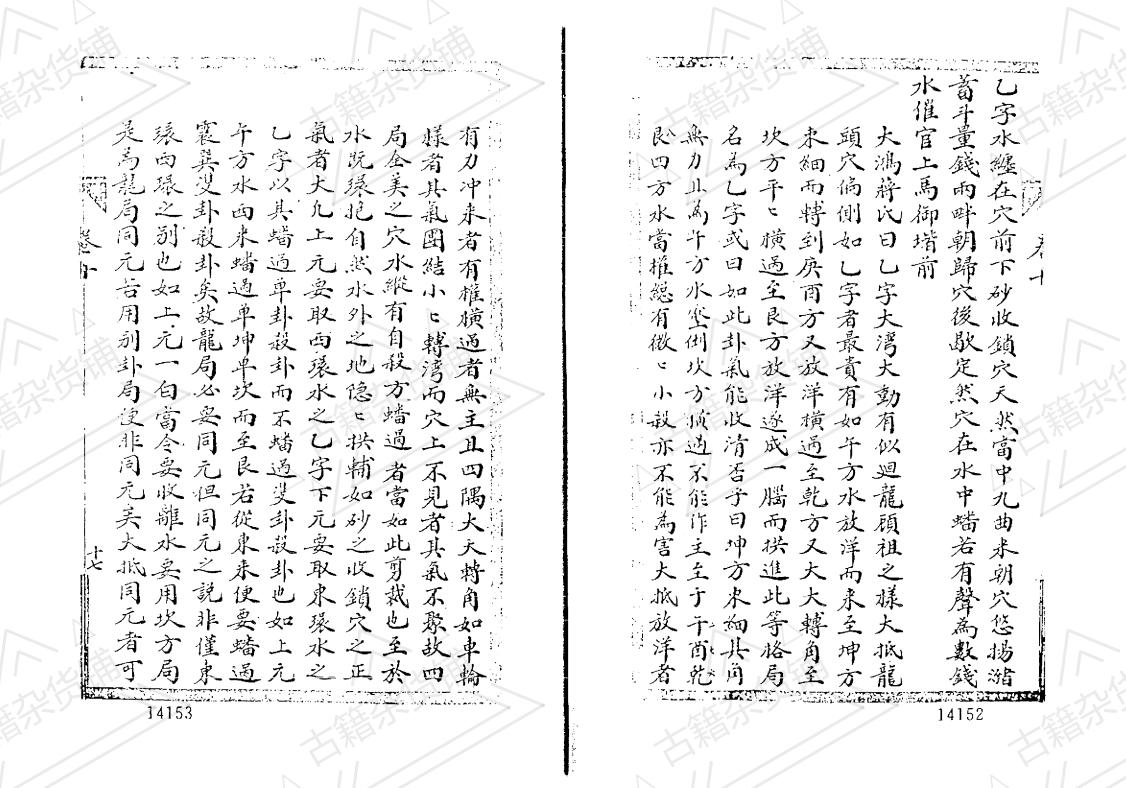 乙字水纏在穴前下砂收鎖穴天然當中九曲來朝穴悠揚瀦
蓄斗量錢兩畔朝歸穴後歇定然穴在水中蟠若有聲為數錢
水催官上馬御堦前
大鴻蔣氏曰乙字大灣大動有似迴龍顧祖之樣大抵龍
頭穴偏側如乙字者最貴有如午方水放洋而來至坤方
束細而轉到庚酉方又放洋橫過至乾方又大大轉角至
坎方平〻橫過至艮方放洋遂成一腦而拱進此等胳局
名為乙字或曰如此卦氣能收清否予曰坤方束細其角
無力且為午方水坐倒坎方橫過不能作主至于午酉乾
艮四方水當權縂有微〻小殺亦不能為害大抵放洋者
卷十
14152
有力冲來者有權橫過者無主且四隅大大轉角如車輪
樣者其氣團結小〻轉灣而穴上不見者其氣不聚故四
局全美之穴水縱有自殺方蟠過者當如此剪裁也至於
水既環抱自然水外之地隱〻拱輔如砂之收鎖穴之正
氣者大凢上元要取西環水之乙字下元要取東環水之
乙字以其蟠過单卦殺卦而不蟠過雙卦殺卦也如上元
午方水西來蟠過单坤单坎而至艮若從東來便要蟠過
震巽雙卦殺卦矣故龍局必要同元但同元之説非僅東
環西環之别也如上元一白當令要收離水要用坎方局
是為龍局同元若用别卦局便非同元矣大抵同元者可
卷十
十七
14153
古籍杂货铺